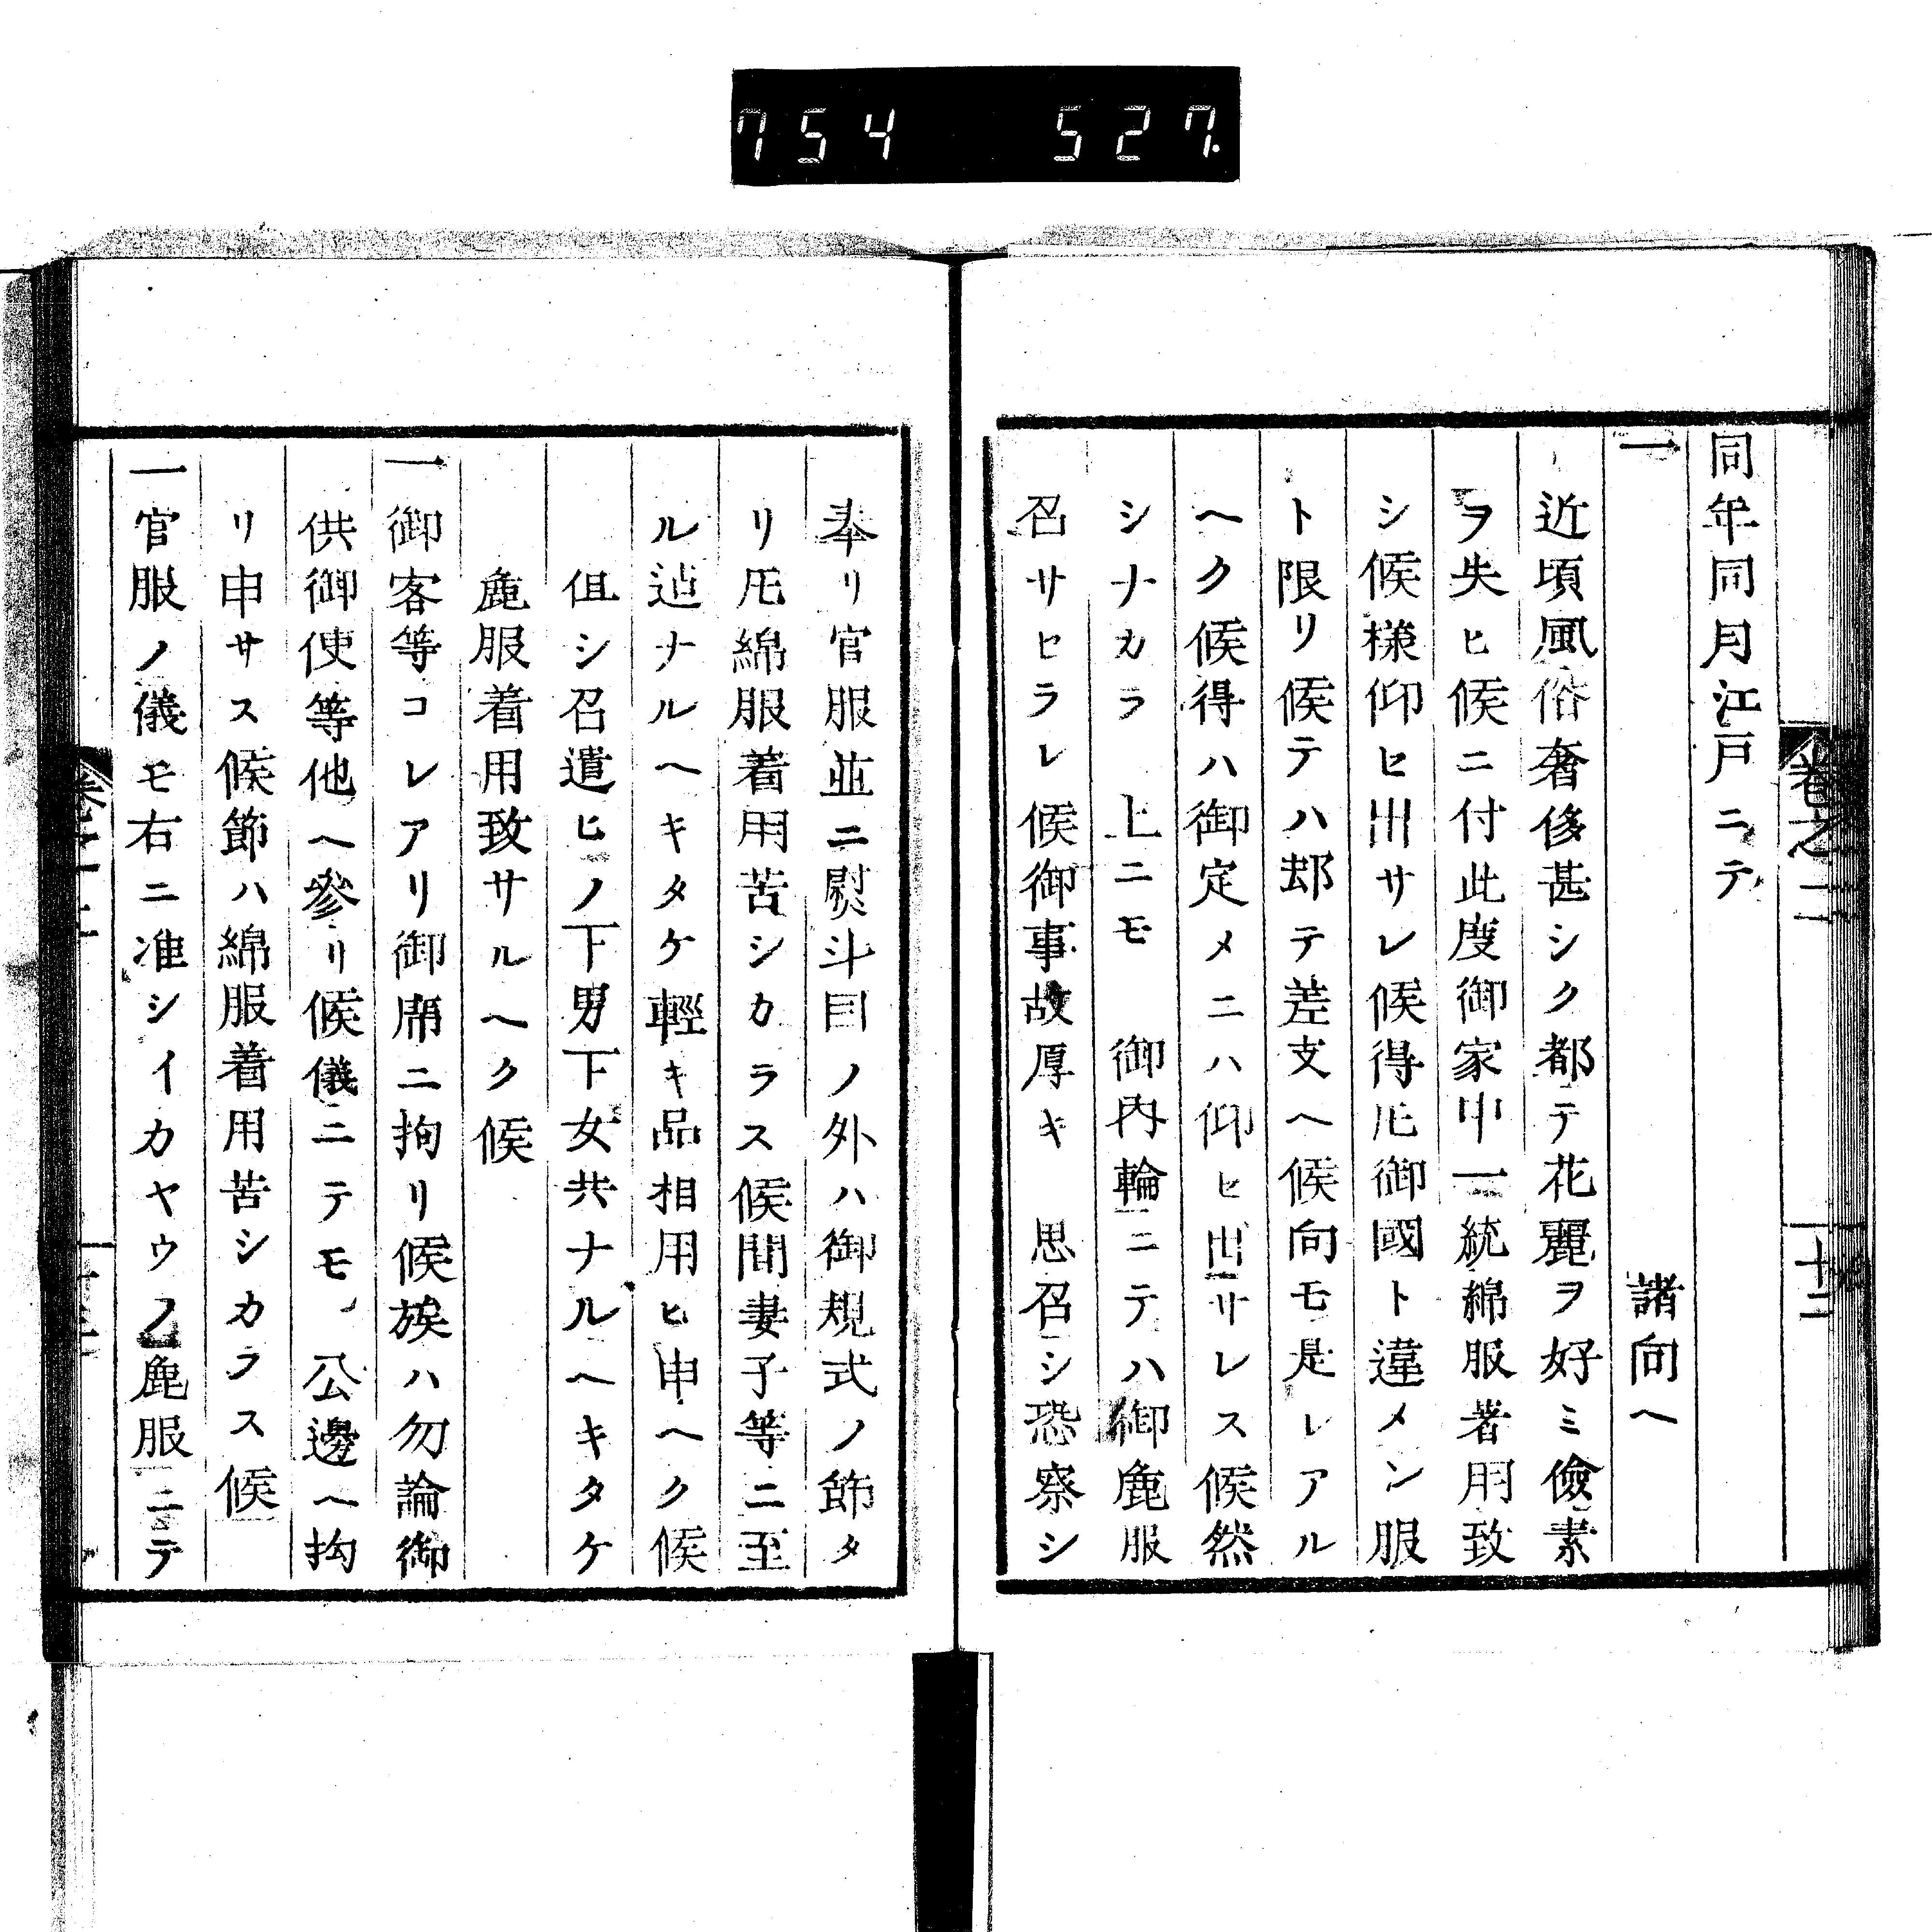 754 527.
卷之二
十二
同年同月江戸ニテ
一 諸向ヘ
近頃風俗奢侈甚シク都テ花麗ヲ好ミ儉素
ヲ失ヒ候ニ付此度御家中一統綿服著用致
シ候樣仰ヒ出サレ候得𪜈御國ト違メン服
ト限リ候テハ却テ差支ヘ候向モ是レアル
ヘク候得ハ御定メニハ仰ヒ出サレス候然
シナカラ 上ニモ 御內輪ニテハ御麁服
召サセラレ候御事故厚キ 思召シ恐察シ
奉リ官服並ニ熨斗目ノ外ハ御規式ノ節タ
リ𪜈綿服着用苦シカラス候間妻子等ニ至
ル迠ナルヘキタケ輕キ品相用ヒ申ヘク候
但シ召遣ヒノ下男下女共ナルヘキタケ
麁服着用致サルヘク候
一御客等コレアリ御席ニ拘リ候族ハ勿論御
供御使等他ヘ參リ候儀ニテモ 公邊ヘ拘
リ申サス候節ハ綿服着用苦シカラス候
一官服ノ儀モ右ニ准シイカヤウノ麁服ニテ